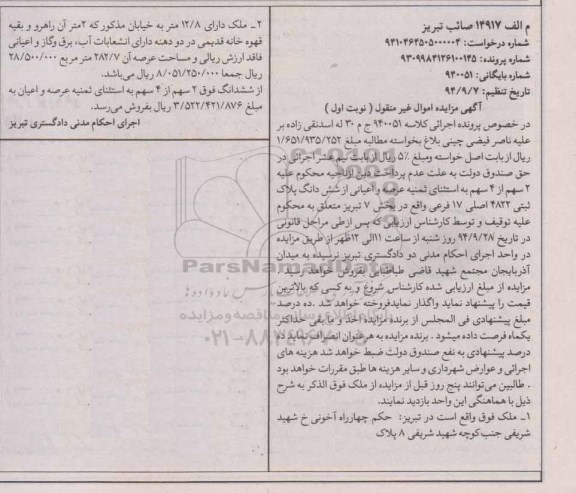 م الف ۱۴۹۱۷ صائب تبریز
شماره درخواست: ۹۴۱۰۴۶۴۵۰۵۰۰۰۰۰۴
شماره پرونده: ۹۳۰۹۹۸۴۱۲۶۱۰۰۱۴۵
شماره بایگانی: ۹۴۰۰۵۱
تاریخ تنظیم: ۹۴/۹/۷
آگهی مزایده اموال غیر منقول ( نوبت اول )
در خصوص پرونده اجرائی کلاسه ۹۴۰۰۵۱ ج م ۳۰ له اسدنقی زاده بر
علیه ناصر فیضی چینی بلاغ بخواسته مطالبه مبلغ ۱/۶۵۱/۹۳۵/۲۵۲
ریال از بابت اصل خواسته ومبلغ ۵٪ ریال از بابت نیم عشر اجرائی در
حق صندوق دولت به علت عدم پرداخت دین ازناحیه محکوم علیه
۲ سهم از ۴ سهم به استثنای ثمنیه عرصه و اعیانی از شش دانگ پلاک
ثبتی ۴۸۲۲ اصلی ۱۷ فرعی واقع در بخش ۷ تبریز متعلق به محکوم
علیه توقیف و توسط کارشناس ارزیابی که پس ازطی مراحل قانونی
در تاریخ ۹۴/۹/۲۸ روز شنبه از ساعت ۱۱الی ۱۲ظهر از طریق مزایده
در واحد اجرای احکام مدنی دو دادگستری تبریز نرسیده به میدان
آذربایجان مجتمع شهید قاضی طباطبایی بفروش خواهد رسید
مزایده از مبلغ ارزیابی شده کارشناس شروع و به کسی که بالاترین
قیمت را پیشنهاد نماید واگذار نمایدفروخته خواهد شد .ده درصد
مبلغ پیشنهادی فی المجلس از برنده مزایده اخذ و مابقی حداکثر
یکماه فرصت داده میشود . برنده مزایده به هرعنوان انصراف نماید ده
درصد پیشنهادی به نفع صندوق دولت ضبط خواهد شد هزینه های
اجرائی و عوارض شهرداری و سایر هزینه ها طبق مقررات خواهد بود
. طالبین می‌توانند پنج روز قبل از مزایده از ملک فوق الذکر به شرح
ذیل با هماهنگی این واحد بازدید نمایند.
۱- ملک فوق واقع است در تبریز: حکم چهارراه آخونی خ شهید
شریفی جنب‌کوچه شهید شریفی ۸ پلاک
۲- ملک دارای ۱۲/۸ متر به خیابان مذکور که ۲متر آن راهرو و بقیه
قهوه خانه قدیمی در دو دهنه دارای انشعابات آب، برق وگاز و اعیانی
فاقد ارزش ریالی و مساحت عرصه آن ۲۸۲/۷ متر مربع ۲۸/۵۰۰/۰۰۰
ریال جمعا ۸/۰۵۱/۲۵۰/۰۰۰ ریال می‌باشد.
از ششدانگ فوق ۲ سهم از ۴ سهم به استثنای ثمنیه عرصه و اعیان به
مبلغ ۳/۵۲۲/۴۲۱/۸۷۶ ریال بفروش می‌رسد.
اجرای احکام مدنی دادگستری تبریز
ParsNamadData
۰۲۱-۸۸۳۴۹۶۷۰